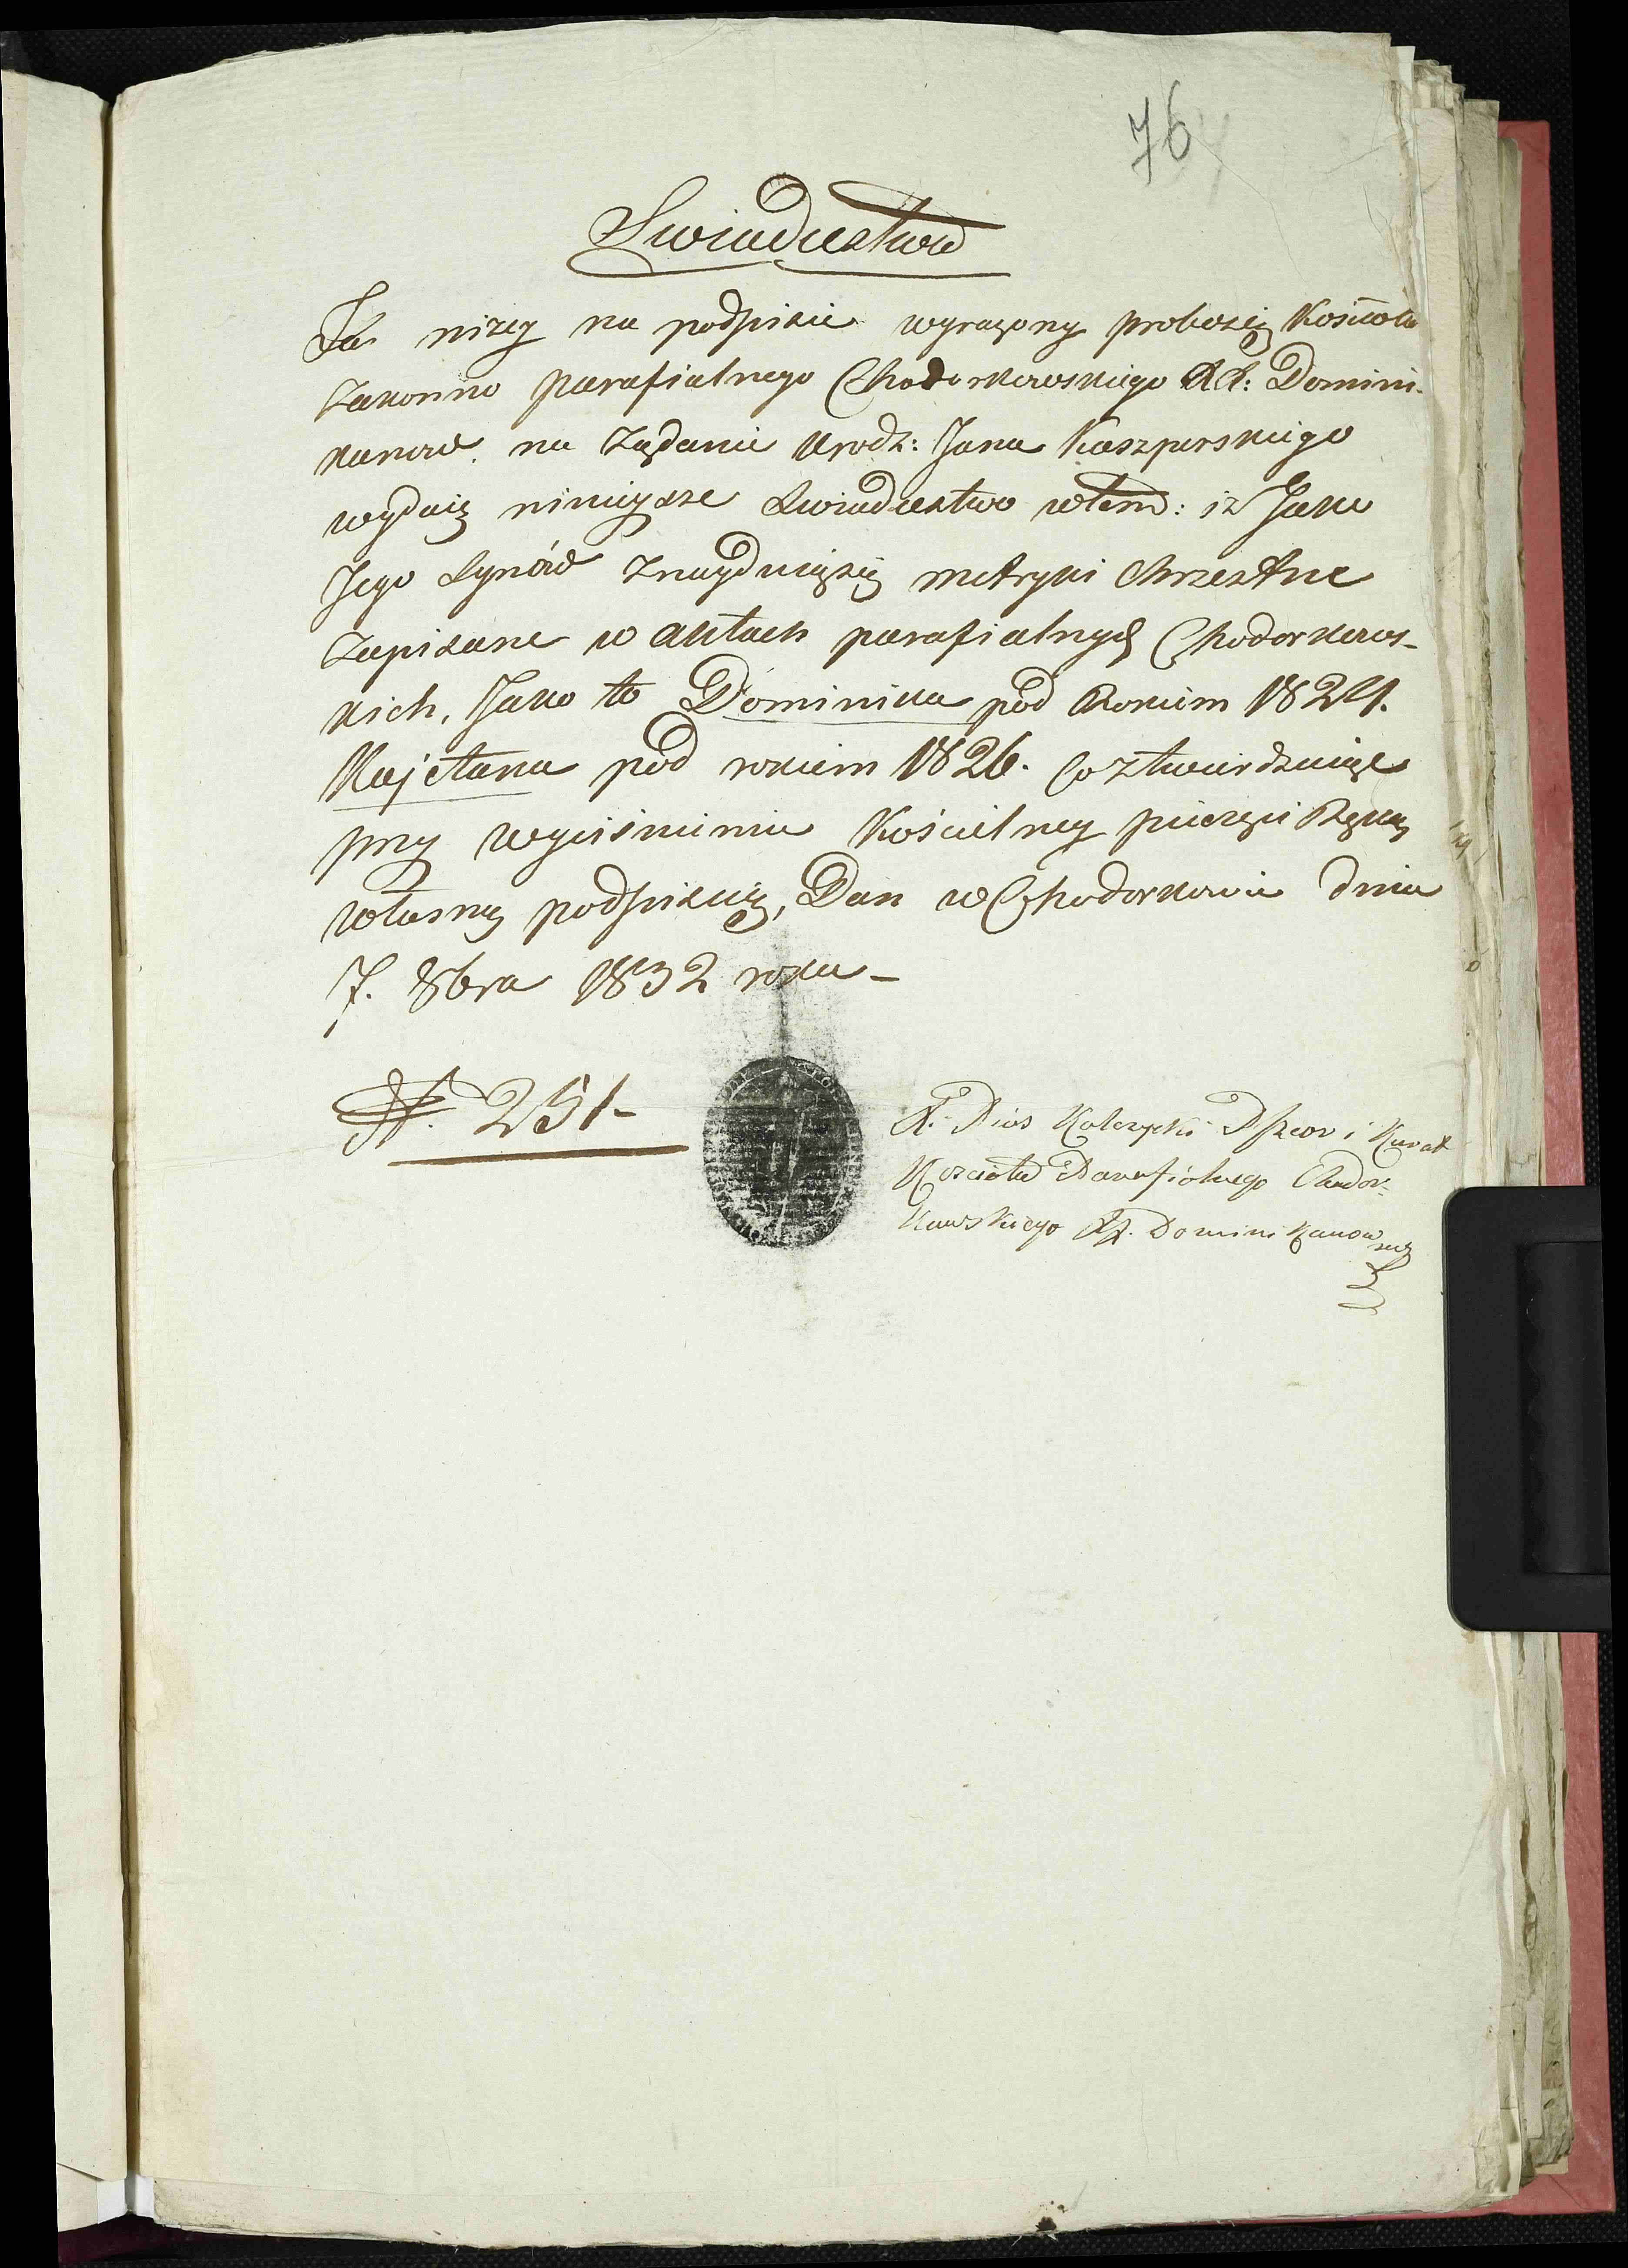 76
Swiadectwo
Ja niżey na podpisie wyrażony proboszcz Kościoła
Zakonno parafialnego Chodorkowskiego XX: Domini-
kanow na Ządanie Urodz: Jana Kaszperskiego
wydaię ninieysze Swiadectwo wtem: iż Jako
Jego Synów Znayduięsię metryki Chrzestne
Zapisane w aktach parafialnych Chodorkows-
kich, Jako to Dominika pod Rokiem 1824.
Kajetana pod rokiem 1826. Co ztwierdzaiąc
przy wyciśnieniu Kościelney pieczęci Ręką
własną podpisuię, Dan w Chodorkowie dnia
7. 8bra 1832 roku -
N. 251-
X. Pius Kulczycki Przeor i Kurat
Kościoła Parafialnego Chodor-
kowskiego XX. Dominikanow mp